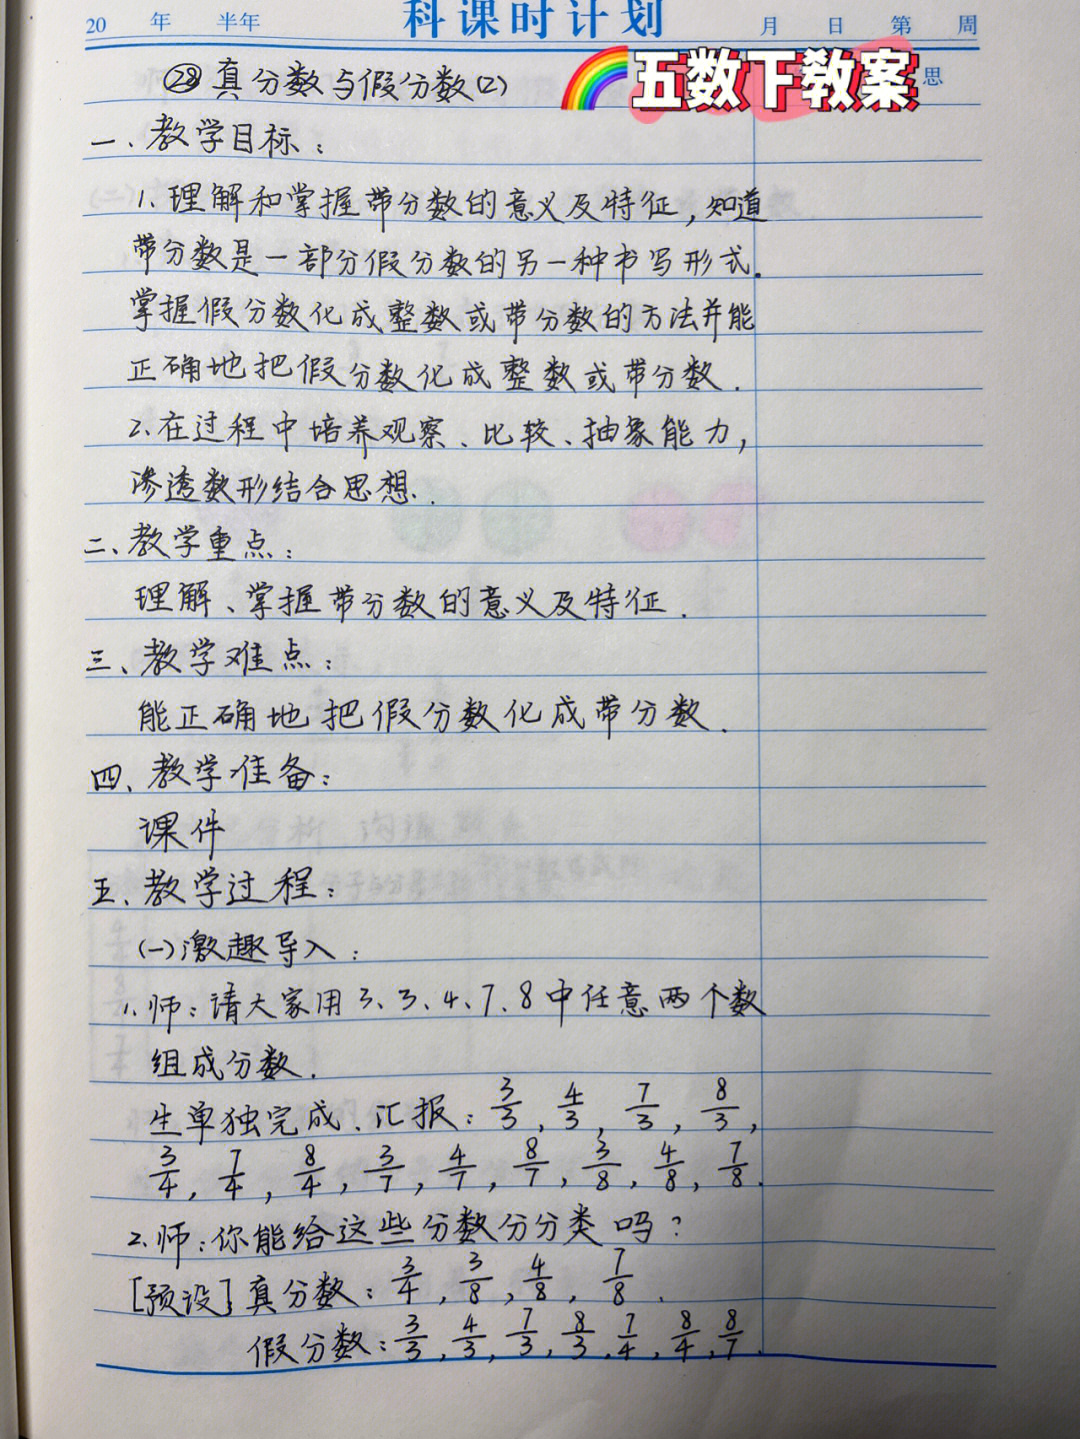 20 年 半年 科课时计划 月 日 第 周
五数下教案 思
㉘ 真分数与假分数(2)
一、教学目标：
1. 理解和掌握带分数的意义及特征，知道
带分数是一部分假分数的另一种书写形式。
掌握假分数化成整数或带分数的方法并能
正确地把假分数化成整数或带分数.
2. 在过程中培养观察、比较、抽象能力，
渗透数形结合思想.
二、教学重点：
理解、掌握带分数的意义及特征.
三、教学难点：
能正确地把假分数化成带分数.
四、教学准备：
课件
五、教学过程：
(一)激趣导入：
1. 师：请大家用3、3、4、7、8中任意两个数
组成分数.
生单独完成、汇报：3/3, 4/3, 7/3, 8/3,
3/4, 7/4, 8/4, 3/7, 4/7, 8/7, 3/8, 4/8, 7/8.
2. 师：你能给这些分数分分类吗？
[预设] 真分数：3/4, 3/8, 4/8, 7/8.
假分数：3/3, 4/3, 7/3, 8/3, 7/4, 8/4, 8/7.